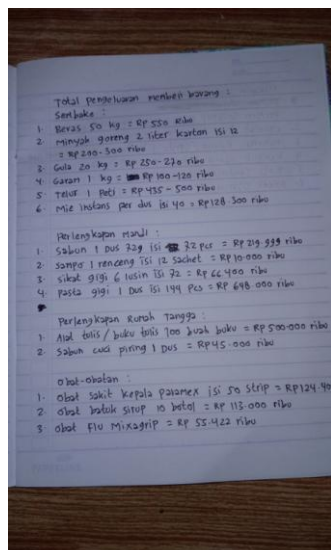 Total Pengeluaran membeli barang :
Sembako :
1. Beras 50 kg = Rp 550 Ribu
2. Minyak goreng 2 liter karton isi 12
= Rp 200-300 ribu
3. Gula 20 kg = Rp 250-270 ribu
4. Garam 1 kg = Rp 100-120 ribu
5. Telur 1 Peti = Rp 435 - 500 ribu
6. Mie instans per dus isi 40 = Rp 128.300 ribu
Perlengkapan Mandi :
1. Sabun 1 Dus 72g isi 72 pcs = Rp 219.999 ribu
2. Sampo 1 renceng isi 12 sachet = Rp 10.000 ribu
3. Sikat gigi 6 lusin isi 72 = Rp 66.400 ribu
4. Pasta gigi 1 Dus isi 144 Pcs = Rp 648.000 ribu
Perlengkapan Rumah Tangga :
1. Alat tulis / buku tulis 100 buah buku = Rp 500.000 ribu
2. Sabun cuci piring 1 Dus = Rp 45.000 ribu
Obat-obatan :
1. Obat sakit kepala paramex isi 50 strip = Rp 124.40
2. Obat batuk sirup 10 botol = Rp 113.000 ribu
3. Obat Flu Mixagrip = Rp 55.422 ribu